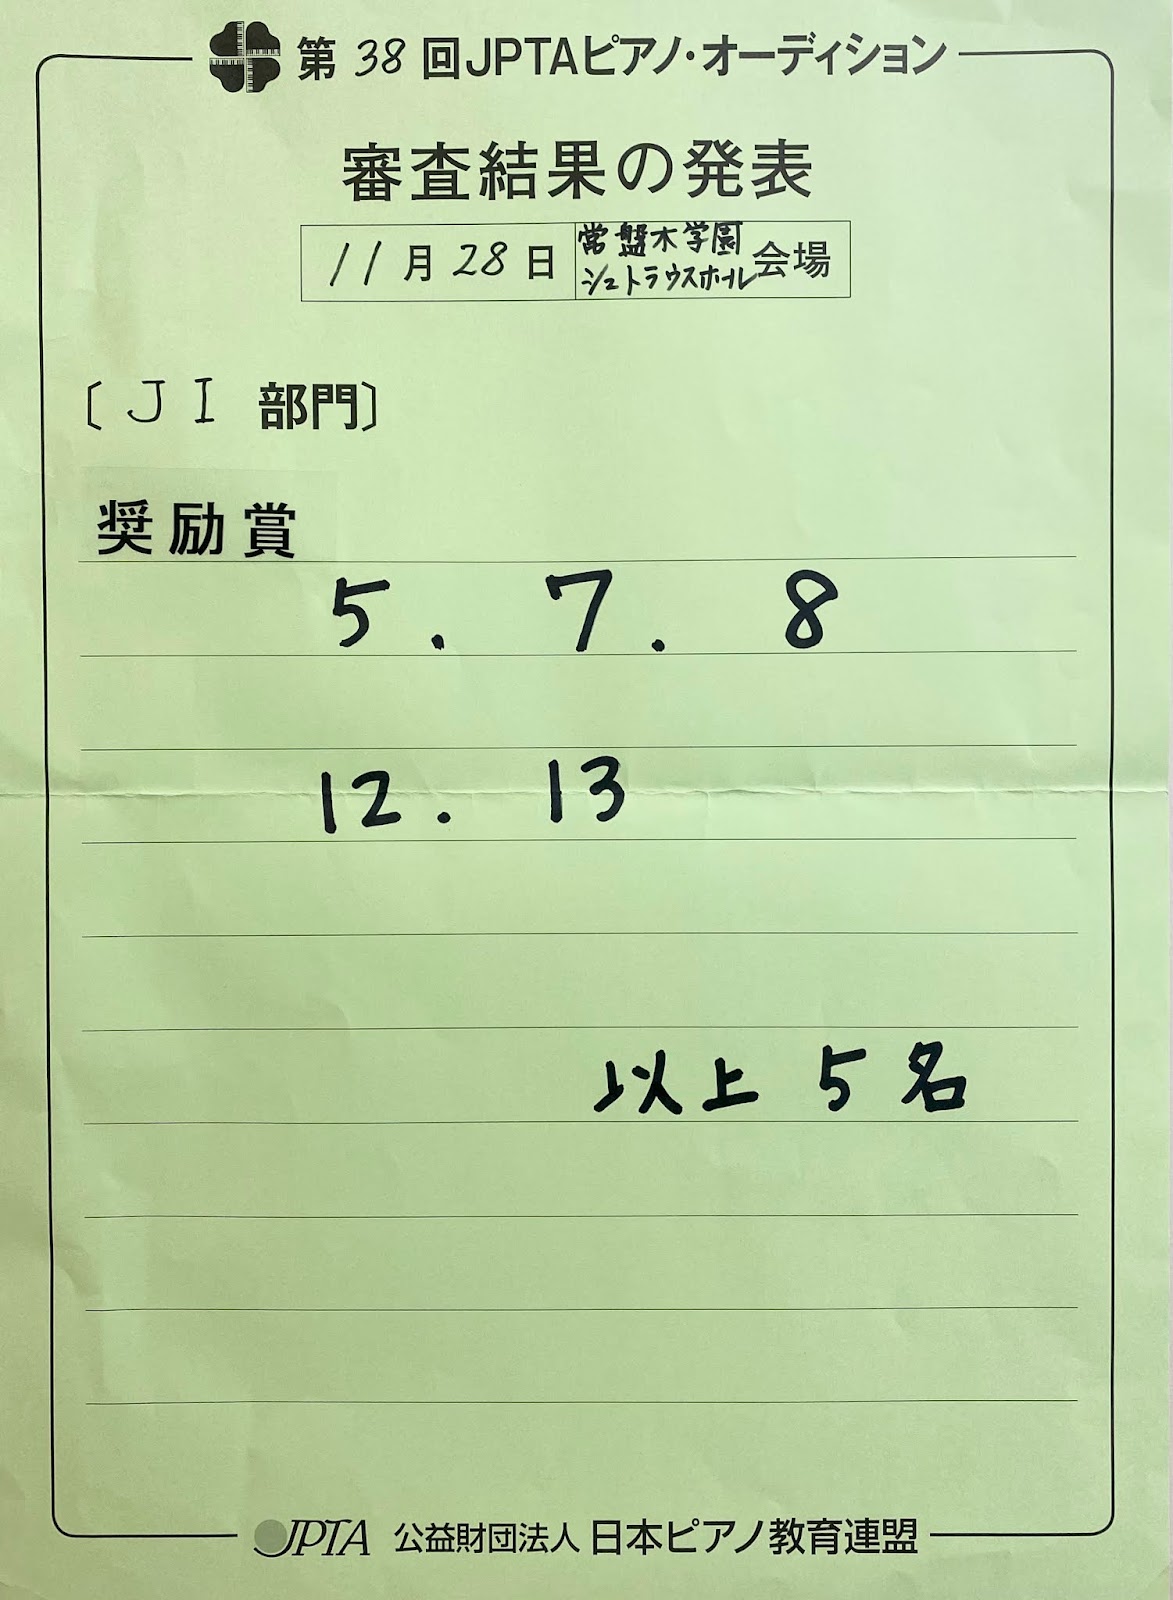 第 38 回JPTAピアノ・オーディション
審査結果の発表
11月28日 常盤木学園シュトラウスホール会場
〔JI 部門〕
奨励賞
5. 7. 8
12. 13
以上 5名
JPTA 公益財団法人 日本ピアノ教育連盟